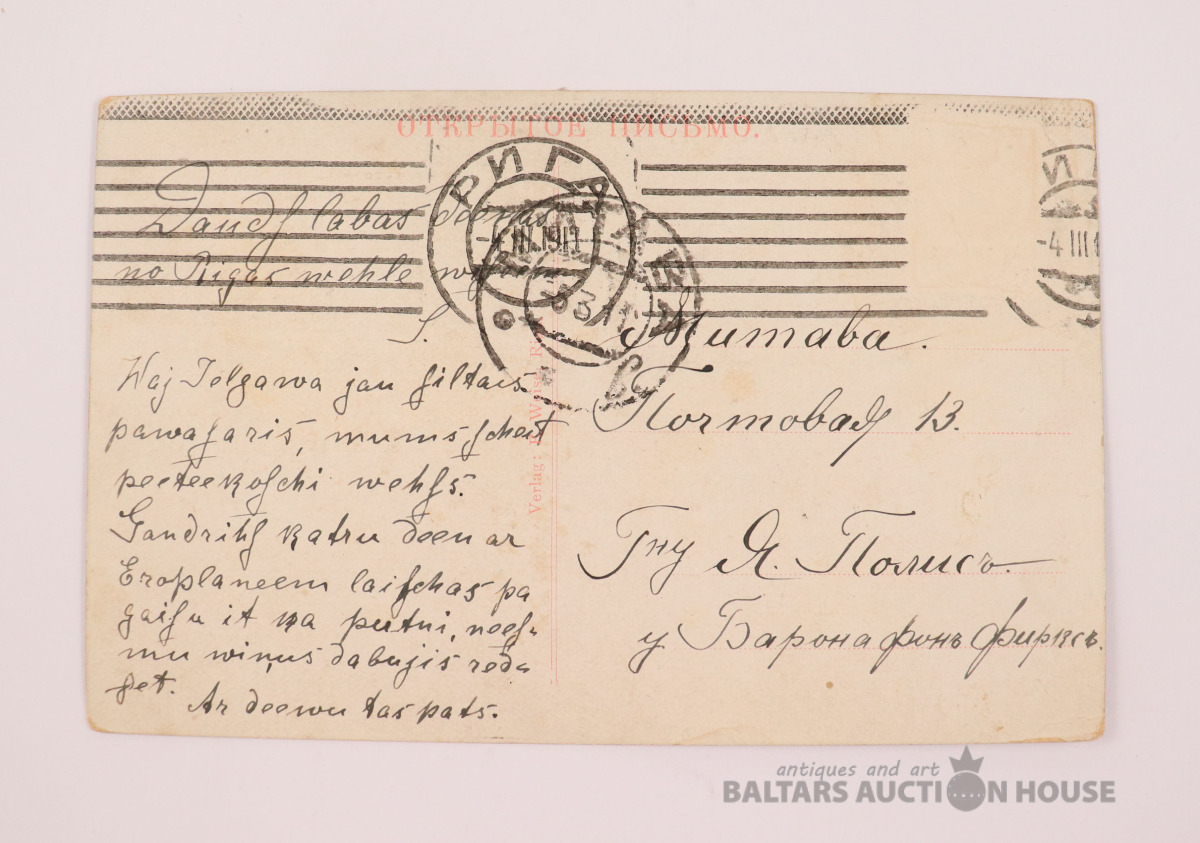 ОТКРЫТОЕ ПИСЬМО.
РИГА
4 III.1911
3 11
-4 III 1
Daudſ labas deenas
no Rigas wehle
S.
Waj Jelgawa jau ſiltais
pawaſaris, mums ſcheit
peeteekoſchi wehſs.
Gandrihſ katru deenu ar
Eroplaneem laiſchas pa
gaiſu it ka putni, neeſ-
mu wiņus dabujis reda
ſet.
Ar deewu tas pats.
Verlag:
Митава.
Почтовая 13.
Гну Я. Полисъ.
у Барона фонъ Фирксъ.
antiques and art
BALTARS AUCTION HOUSE